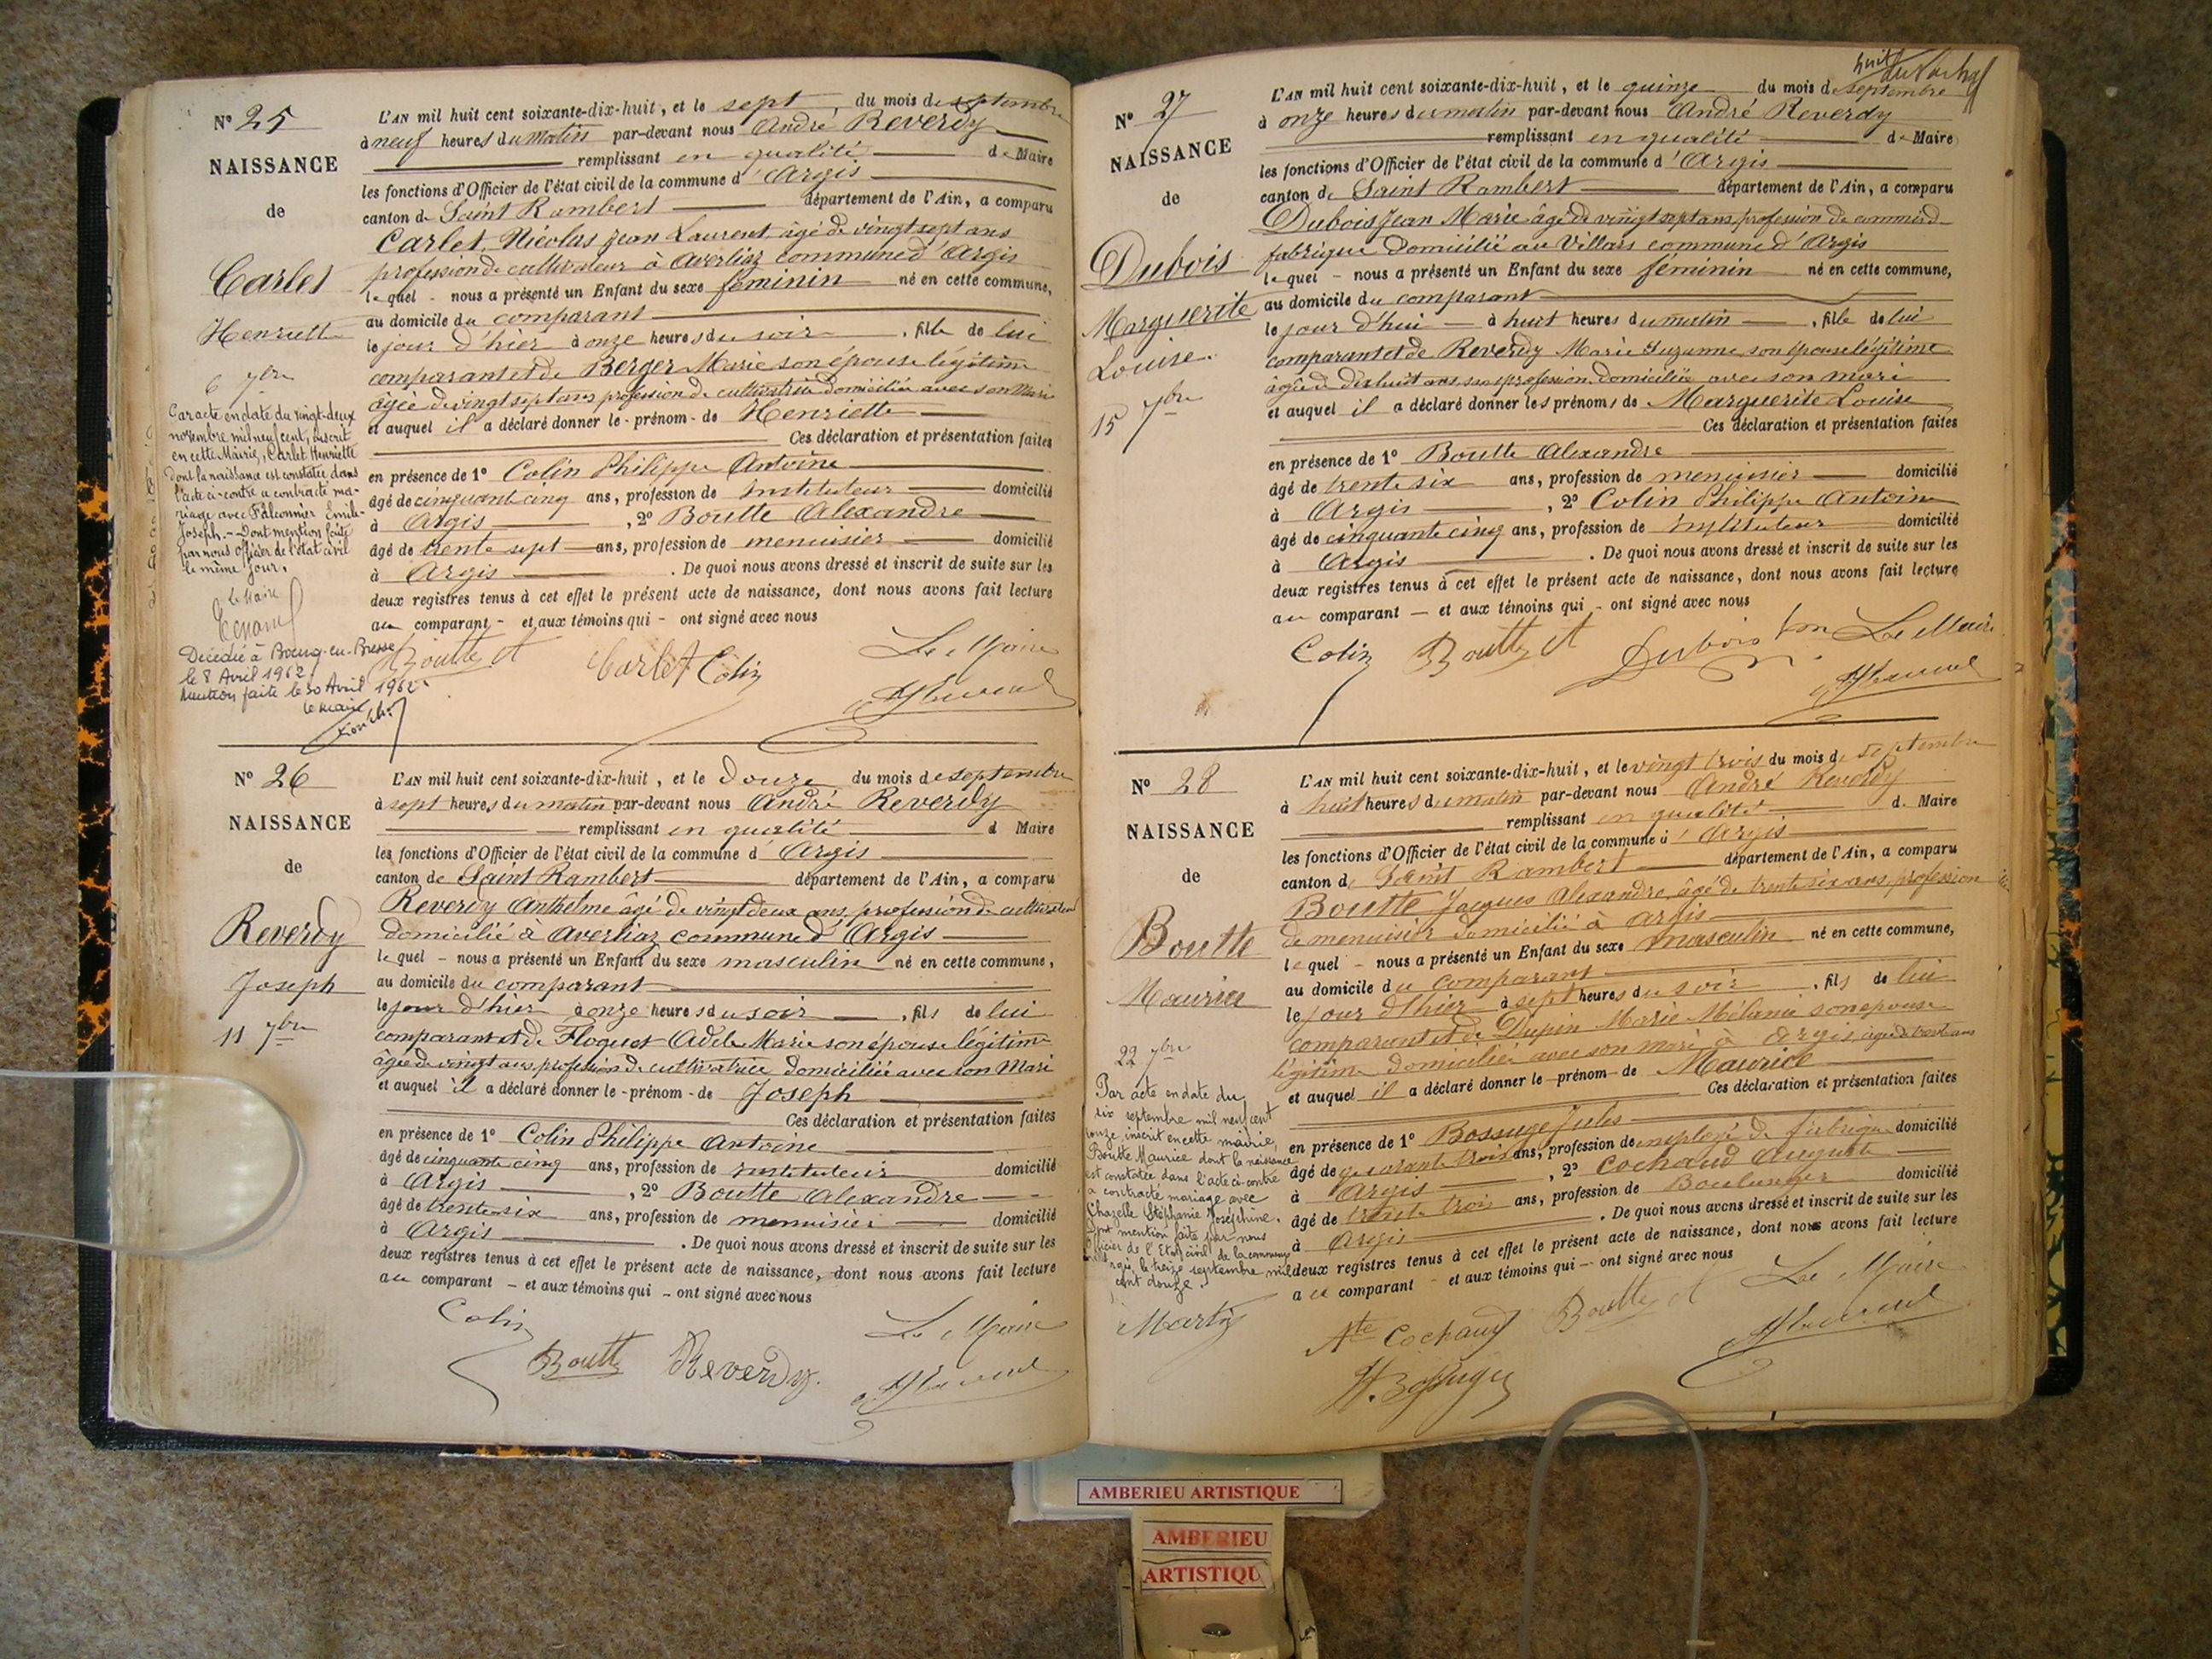 N° 25
NAISSANCE
de
Carlet
Henriette
6 7bre
Par acte en date du vingt-deux
novembre mil neuf cent, inscrit
en cette Mairie, Carlet Henriette
dont la naissance est constatée dans
l'acte ci-contre a contracté ma-
riage avec Falconnier Emile
Joseph. - Dont mention faite
par nous officier de l'état civil
le même jour.
le Maire
Décédée à Bourg-en-Bresse
le 8 Avril 1962
Mention faite le 30 Avril 1962
le maire
L'AN mil huit cent soixante-dix-huit, et le sept du mois de septembre
à neuf heures du matin par-devant nous André Reverdy
remplissant en qualité de Maire
les fonctions d'Officier de l'état civil de la commune d'Argis
canton de Saint Rambert département de l'Ain, a comparu
Carlet Nicolas Jean Laurent âgé de vingt sept ans
profession de cultivateur à Averliaz commune d'Argis
lequel - nous a présenté un Enfant du sexe féminin né en cette commune,
au domicile du comparant
le jour d'hier à onze heures du soir, fille de lui
comparant et de Berger Marie son épouse légitime
âgée de vingt sept ans profession de cultivatrice domiciliée avec son mari
et auquel il a déclaré donner le - prénom - de Henriette
Ces déclaration et présentation faites
en présence de 1° Colin Philippe Antoine
âgé de cinquante cinq ans, profession de Instituteur domicilié
à Argis, 2° Boutte Alexandre
âgé de trente sept ans, profession de menuisier domicilié
à Argis. De quoi nous avons dressé et inscrit de suite sur les
deux registres tenus à cet effet le présent acte de naissance, dont nous avons fait lecture
au comparant - et aux témoins qui - ont signé avec nous
Boutte A Carlet Colin Le Maire
N° 26
NAISSANCE
de
Reverdy
Joseph
11 7bre
L'AN mil huit cent soixante-dix-huit, et le douze du mois de septembre
à sept heures du matin par-devant nous André Reverdy
remplissant en qualité d Maire
les fonctions d'Officier de l'état civil de la commune d'Argis
canton de Saint Rambert département de l'Ain, a comparu
Reverdy Anthelme âgé de vingt deux ans, profession de cultivateur
domicilié à Averliaz commune d'Argis
lequel - nous a présenté un Enfant du sexe masculin né en cette commune,
au domicile du comparant
le jour d'hier à onze heures du soir, fils de lui
comparant et de Floquet Adèle Marie son épouse légitime
âgée de vingt ans, profession de cultivatrice domiciliée avec son Mari
et auquel il a déclaré donner le - prénom - de Joseph
Ces déclaration et présentation faites
en présence de 1° Colin Philippe Antoine
âgé de cinquante cinq ans, profession de instituteur domicilié
à Argis, 2° Boutte Alexandre
âgé de trente six ans, profession de menuisier domicilié
à Argis. De quoi nous avons dressé et inscrit de suite sur les
deux registres tenus à cet effet le présent acte de naissance, dont nous avons fait lecture
au comparant - et aux témoins qui - ont signé avec nous
Colin Le Maire
Boutte Reverdy
N° 27
NAISSANCE
de
Dubois
Marguerite
Louise.
15 7bre
L'AN mil huit cent soixante-dix-huit, et le quinze du mois de septembre
à onze heures du matin par-devant nous André Reverdy
remplissant en qualité de Maire
les fonctions d'Officier de l'état civil de la commune d'Argis
canton de Saint Rambert département de l'Ain, a comparu
Dubois Jean Marie âgé de vingt sept ans, profession de commis de
fabrique domicilié au Villars commune d'Argis
lequel - nous a présenté un Enfant du sexe féminin né en cette commune,
au domicile du comparant
le jour d'hui à huit heures du matin, fille de lui
comparant et de Reverdy Marie Suzanne son épouse légitime
âgée de dix huit ans, sans profession domiciliée avec son mari
et auquel il a déclaré donner les prénoms de Marguerite Louise
Ces déclaration et présentation faites
en présence de 1° Boutte Alexandre
âgé de trente six ans, profession de menuisier domicilié
à Argis, 2° Colin Philippe Antoine
âgé de cinquante cinq ans, profession de instituteur domicilié
à Argis. De quoi nous avons dressé et inscrit de suite sur les
deux registres tenus à cet effet le présent acte de naissance, dont nous avons fait lecture
au comparant - et aux témoins qui - ont signé avec nous
Colin Boutte A Dubois Le Maire
N° 28
NAISSANCE
de
Boutte
Maurice
22 7bre
Par acte en date du
dix septembre mil neuf cent
douze, inscrit en cette mairie,
Boutte Maurice dont la naissance
est constatée dans l'acte ci-contre
a contracté mariage avec
Chazelle Stéphanie Joséphine.
Dont mention faite par nous
Officier de l'Etat civil de la commune
d'Argis, le treize septembre mil neuf
cent douze.
Martin
L'AN mil huit cent soixante-dix-huit, et le vingt trois du mois de septembre
à huit heures du matin par-devant nous André Reverdy
remplissant en qualité de Maire
les fonctions d'Officier de l'état civil de la commune d'Argis
canton de Saint Rambert département de l'Ain, a comparu
Boutte Jacques Alexandre, âgé de trente six ans, profession
de menuisier domicilié à Argis
lequel - nous a présenté un Enfant du sexe masculin né en cette commune,
au domicile du comparant
le jour d'hier à sept heures du soir, fils de lui
comparant et de Dupin Marie Mélanie son épouse
légitime domiciliée avec son mari à Argis, âgée de trente ans
et auquel il a déclaré donner le - prénom - de Maurice
Ces déclaration et présentation faites
en présence de 1° Bossuge Jules
âgé de quarante trois ans, profession de employé de fabrique domicilié
à Argis, 2° Cochaud Auguste
âgé de trente trois ans, profession de Boulanger domicilié
à Argis. De quoi nous avons dressé et inscrit de suite sur les
deux registres tenus à cet effet le présent acte de naissance, dont nous avons fait lecture
au comparant - et aux témoins qui - ont signé avec nous
Ate Cochaud Boutte A Le Maire
AMBERIEU ARTISTIQUE
AMBERIEU
ARTISTIQU